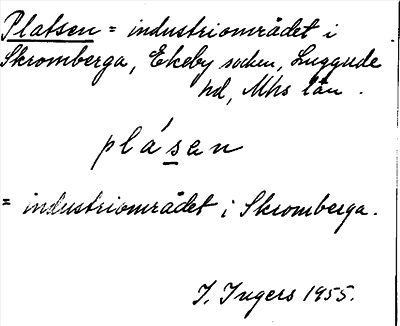 Platsen = industriområdet i
Skromberga, Ekeby socken, Luggude
hd, Mhs län.
plásen
= industriområdet i Skromberga.
I. Ingers 1955.